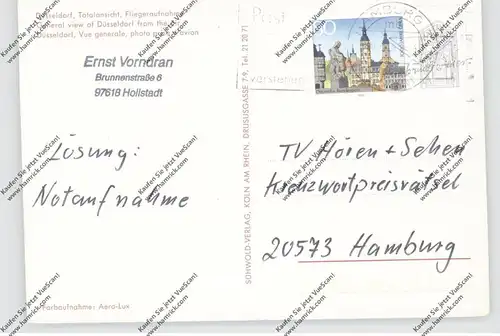 Düsseldorf, Totalansicht, Fliegeraufnahme
General view of Düsseldorf from the
Düsseldorf, Vue generale, photo par avion
Ernst Vorndran
Brunnenstraße 6
97618 Hollstadt
Lösung:
Notaufnahme
Farbaufnahme: Aero-Lux
SCHWOLD-VERLAG, KÖLN AM RHEIN, DRUSUSGASSE 7-9, Tel. 21 20 71
Post
TV Hören + Sehen
Kreuzwortpreisrätsel
20573 Hamburg
Kaufen Sie jetzt VueScan!
www.hamrick.com